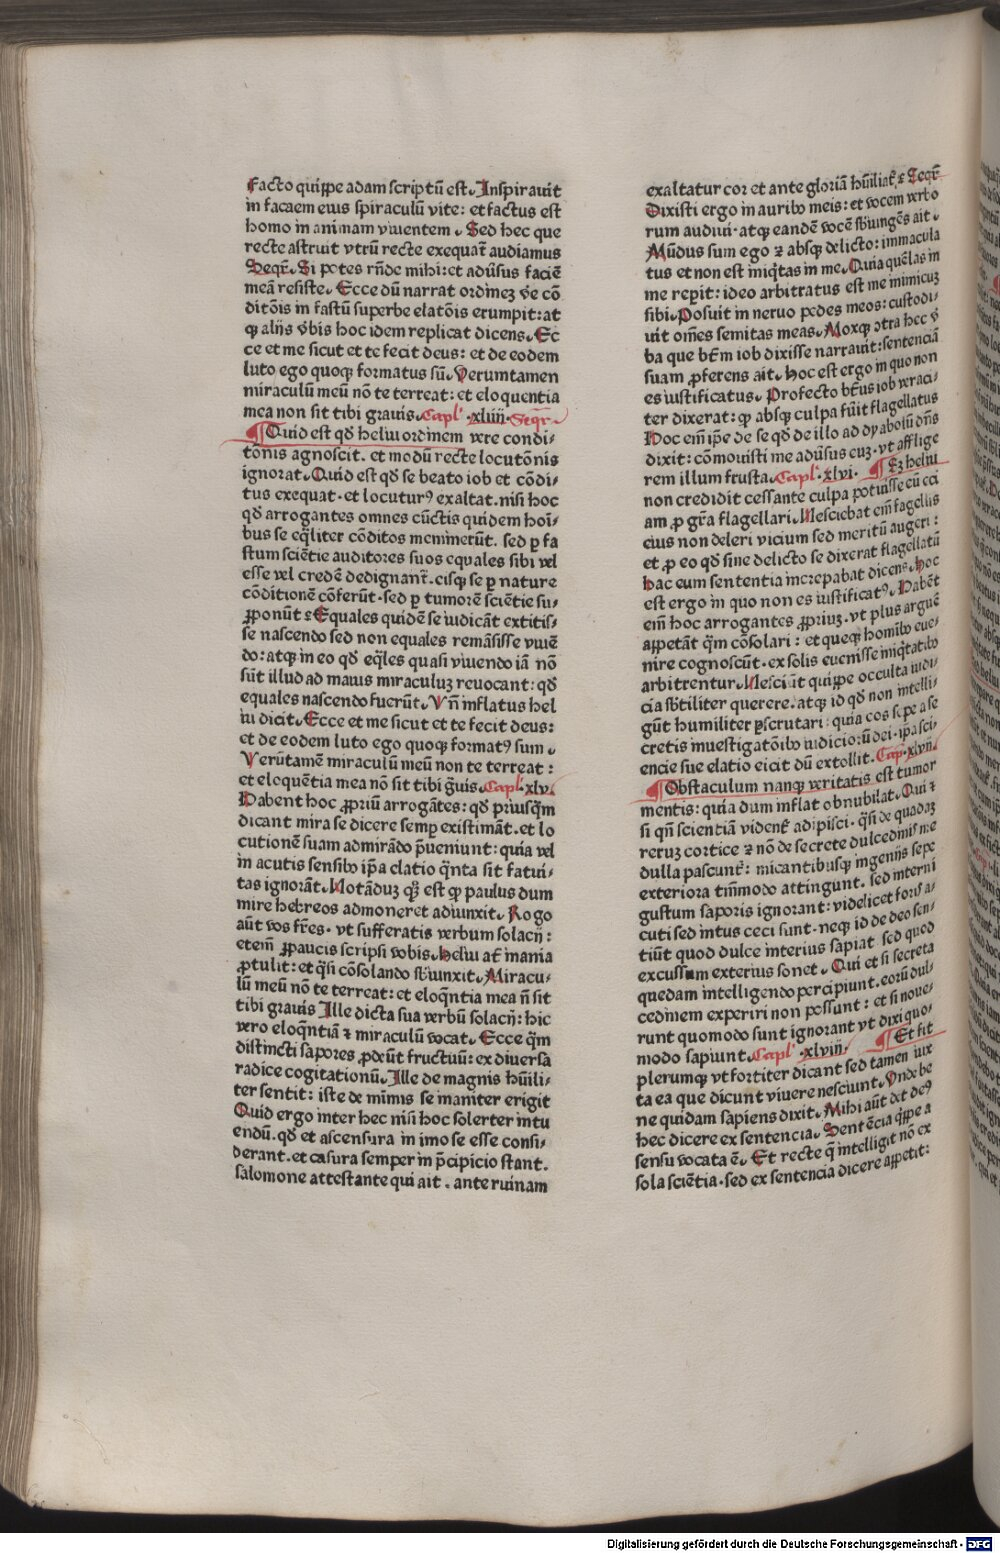 Facto quippe adam scriptū est. Inspirauit
in facaem eius spiraculū vite: et factus est
homo in animam viuentem. Sed hec que
recte astruit vtrū recte exequat̄ audiamus
Seqr̄. Si potes rñde mihi: et adūsus faciē
meā resiste. Ecce dū narrat ordinez ꝟe cō
ditōis in fastū superbe elatōis erumpit: at
qꝫ alijs ꝟbis hoc idem replicat dicens. Ec
ce et me sicut et te fecit deus: et de eodem
luto ego quoqꝫ formatus sū. Verumtamen
miraculū meū nō te terreat: et eloquentia
mea non sit tibi grauis. Capl' .xliiij. Seqr̄
¶ Quid est qd̄ heliu ordinem vere condi-
tōnis agnoscit. et modū recte locutōnis
ignorat. Quid est qd̄ se beato iob et cōdi-
tus exequat. et locuturꝰ exaltat. nisi hoc
qd̄ arrogantes omnes cūctis quidem hoī-
bus se eq̄liter cōditos meminerūt. sed ꝑ fa
stum sciētie auditores suos equales sibi vel
esse vel credē dedignant̄. cisqꝫ se ꝑ nature
cōditionē cōferūt. sed ꝑ tumorē sciētie su-
ꝓponūt Equales quidē se iudicāt extitis-
se nascendo sed non equales remāsisse viuē
do: atqꝫ in eo qd̄ eq̄les quasi viuendo iā nō
sūt illud ad maius miraculuꝫ reuocant: qd̄
equales nascendo fuerūt. Vñ inflatus hel
iu dicit. Ecce et me sicut et te fecit deus:
et de eodem luto ego quoqꝫ formatꝰ sum.
Verūtamē miraculū meū non te terreat:
et eloquētia mea nō sit tibi ḡuis. Capl' .xlv.
Habent hoc ꝓpriū arrogātes: qd̄ priusq̄m
dicant mira se dicere semꝑ existimāt. et lo
cutionē suam admirādo p̄ueniunt: quia vel
in acutis sensibo ip̄a elatio q̄nta sit fatui-
tas ignorāt. Notāduꝫ qꝫ est qꝙ paulus dum
mire hebreos admoneret adiunxit. Rogo
aūt vos fr̄es. vt sufferatis verbum solacij:
etem̄ ꝑpaucis scripsi vobis. Heliu at̄ inania
ꝓtulit: et q̄si cōsolando sb̄iunxit. Miracu-
lū meū nō te terreat: et eloq̄ntia mea ñ sit
tibi grauis Ille dicta sua verbū solacij: hic
vero eloq̄ntiā ⁊ miraculū vocat. Ecce q̄m
distincti sapores ꝓdeūt fructuū: ex diuersa
radice cogitationū. Ille de magnis hūili-
ter sentit: iste de minīs se inaniter erigit
Quid ergo inter hec nisi hoc solerter intu
endū. qd̄ et ascensura in imo se esse consi-
derant. et casura semper in p̄cipicio stant.
salomone attestante qui ait. ante ruinam
exaltatur cor et ante gloriā hūiliat̄. Seqr̄
Dixisti ergo in auribo meis: et vocem verbo
rum audiui. atqꝫ eandē vocē sb̄iungēs ait.
Mūdus sum ego ⁊ absqꝫ delicto: immacula
tus et non est iniq̄tas in me. Quia quēlas in
me repit: ideo arbitratus est me inimicuꝫ
sibi. Posuit in neruo pedes meos: custodi-
uit om̄es semitas meas. Moxqꝫ ꝯtra hec ꝟ
ba que bt̄m iob dixisse narrauit: sentenciā
suam ꝓferens ait. hoc est ergo in quo non
es iustificatus. Profecto bt̄us iob veraci-
ter dixerat: qꝙ absqꝫ culpa fūit flagellatus
Hoc em̄ ip̄e de se qd̄ de illo ad dyabolū dn̄s
dixit: cōmouisti me adūsus euꝫ. vt afflige
rem illum frusta. Capl' .xlvi. ¶ Eꝫ heliu
non credidit cessante culpa potuisse eū eci
am ꝓ gr̄a flagellari. Nesciebat em̄ fagellis
eius non deleri vicium sed meritū augeri:
et ꝓ eo qd̄ sine delicto se dixerat flagellatū
hac eum sententia increpabat dicens. Hoc
est ergo in quo non es iustificatꝰ. Habēt
em̄ hoc arrogantes ꝓpriuꝫ. vt plus arguē
appetāt q̄m cōsolari: et queqꝫ hominbo eue-
nire cognoscūt. ex solis euenisse iniq̄tatibo
arbitrentur. Nesciūt quippe occulta iudi-
cia sb̄tiliter querere. atqꝫ id qd̄ non intelli-
gūt humiliter ꝑscrutari: quia eos sepe a se
cretis inuestigatōibo iudicioꝝ dei. ip̄a sci-
encie sue elatio eicit dū extollit. Cap .xlvij.
¶ Obstaculum nanqꝫ veritatis est tumor
mentis: quia dum inflat obnubilat. Qui ⁊
si qn̄ scientiā vident̄ adipisci. q̄si de quadaꝫ
reruꝫ cortice ⁊ nō de secrete dulcedinis me
dulla pascunt̄: micantibusqꝫ ingenijs sepe
exteriora tm̄modo attingunt. sed interni
gustum saporis ignorant: videlicet foris a-
cuti sed intus ceci sunt. neqꝫ id de deo sen-
tiūt quod dulce interius sapiat sed quod
excussum exterius sonet. Qui et si secreta
quedam intelligendo percipiunt. eorū dul-
cedinem experiri non possunt: et si noue-
runt quomodo sunt ignorant vt dixi quo-
modo sapiunt. Capl' .xlviij. ¶ Et fit
plerumqꝫ vt fortiter dicant sed tamen iux
ta ea que dicunt viuere nesciunt. Vnde be
ne quidam sapiens dixit. Mihi aūt det deꝰ
hec dicere ex sentencia. Sentēcia q̄ppe a
sensu vocata ē. Et recte q̄ intelligit nō ex
sola sciētia. sed ex sentencia dicere appetit:
Digitalisierung gefördert durch die Deutsche Forschungsgemeinschaft - DFG